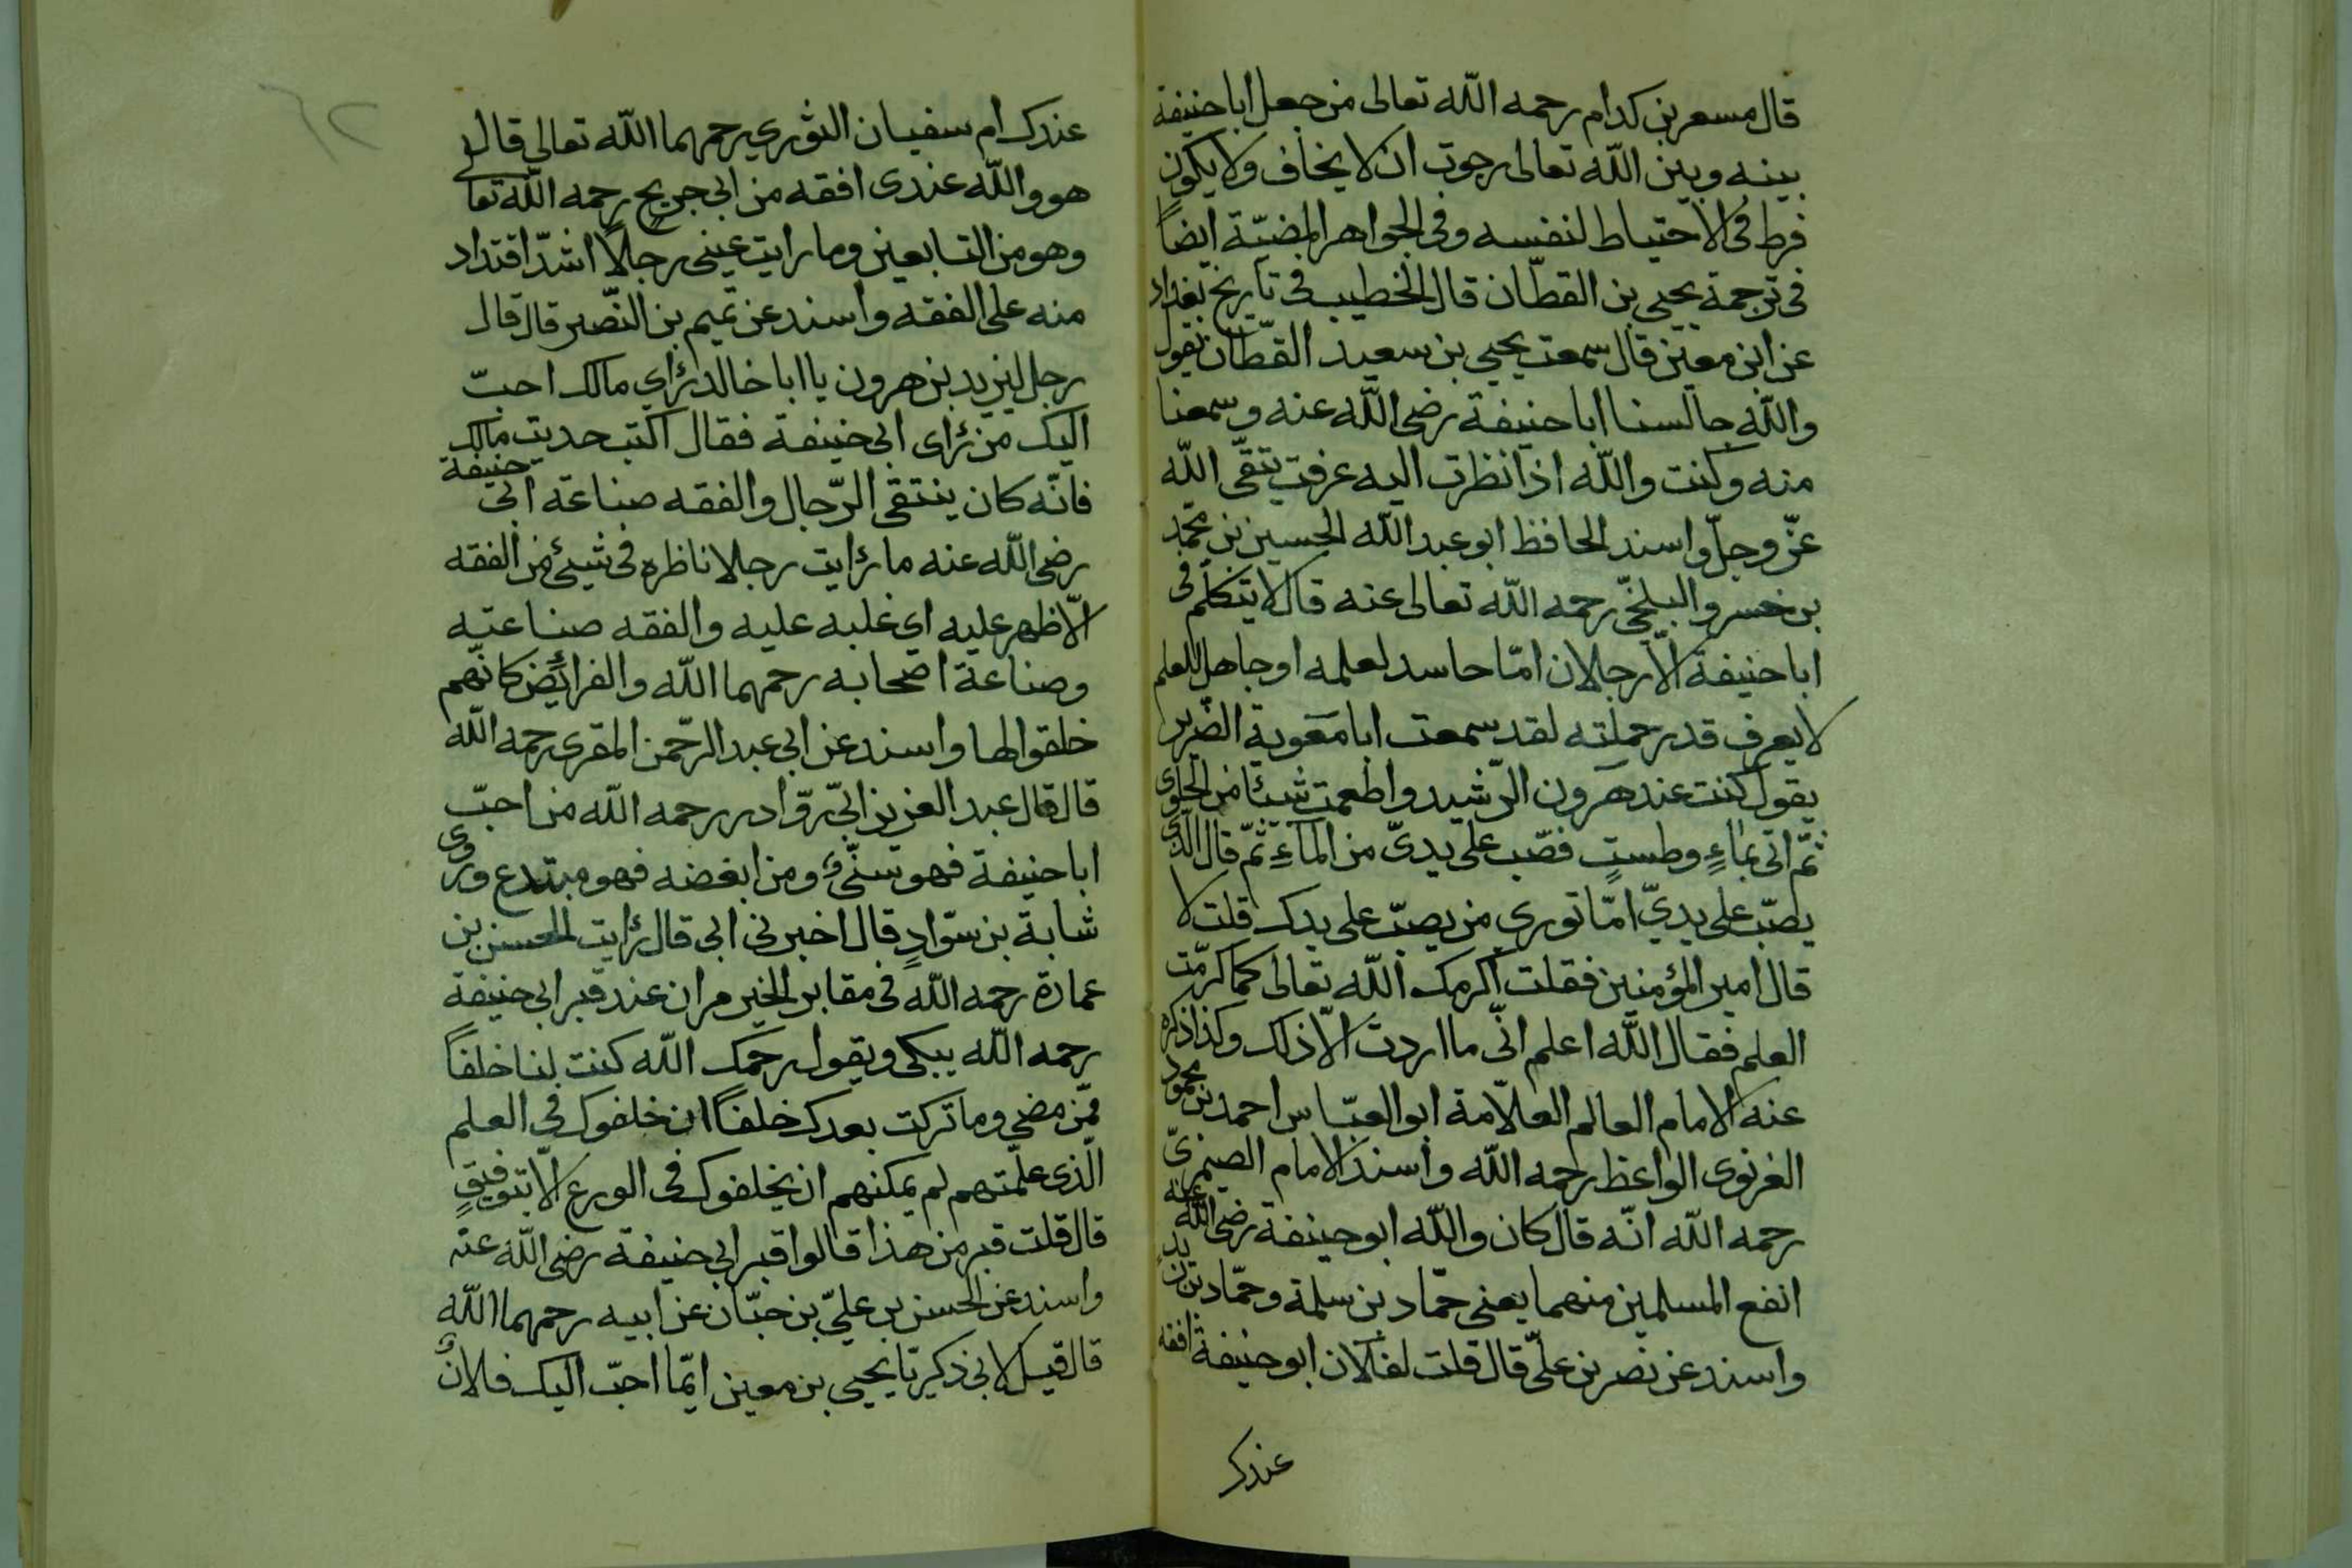 قال مسعر بن كدام رحمه الله تعالى من جعل ابا حنيفة
بينه وبين الله تعالى رجوت ان لا يخاف ولا يكون
فرط فى الاحتياط لنفسه وفى الجواهر المضيّة ايضاً
فى ترجمة يحيى بن القطّان قال الخطيب فى تاريخ بغداد
عن ابن معين قال سمعت يحيى بن سعيد القطّان يقول
والله جالسنا ابا حنيفة رضى الله عنه وسمعنا
منه وكنت والله اذا نظرت اليه عرفت يتقى الله
عزّ وجلّ واسند الحافظ ابو عبد الله الحسين بن محمد
بن خسرو البلخىّ رحمه الله تعالى عنه قال لا يتكلّم فى
ابا حنيفة الّا رجلان امّا حاسد لعلمه او جاهل بالعلم
لا يعرف قدر حملته لقد سمعت ابا معوية الضّرير
يقول كنت عند هرون الرّشيد واطعمت شيئا من الحلوى
ثمّ اتى بماءٍ وطستٍ فصّب على يدىّ من الماءِ ثمّ قال الّذى
يصبّ على يدىّ امّا تورى من يصبّ على يدك قلت لا
قال امير المؤمنين فقلت اكرمك الله تعالى كما كرّمت
العلم فقال الله اعلم انّى ما اردت الّا ذلك وكذا ذكره
عنه الامام العالم العلّامة ابو العبّاس احمد بن محمود
الغزنوى الواعظ رحمه الله واسند الامام الصيمرىّ
رحمه الله انّه قال كان والله ابو حنيفة رضى الله عنه
انفع المسلمين منهما يعنى حمّاد بن سلمة وحمّاد بن زيد
واسند عن نصر بن علىّ قال قلت لفلان ابو حنيفة افقه
عندك
عندك ام سفيان الثورى رحمهما الله تعالى قال
هو والله عندى افقه من ابى جريج رحمه الله تعالى
وهو من التابعين وما رايت عينى رجلا اشدّ اقتداد
منه على الفقه واسند عن تميم بن النّصير قال قال
رجل ليزيد بن هرون يا ابا خالد رأى مالك احبّ
اليك من رأى ابى حنيفة فقال اكتب حديث مالك
فانّه كان ينتقى الرّجال والفقه صناعة ابى حنيفة
رضى الله عنه ما رأيت رجلا ناظره فى شيئ من الفقه
الّا ظهر عليه اى غلبه عليه والفقه صناعته
وصناعة اصحابه رحمهما الله والفرائض كانّهم
خلقوا لها واسند عن ابى عبد الرّحمن المقرى رحمه الله
قال قال عبد العزيز ابىّ روّاد رحمه الله من احبّ
ابا حنيفة فهو سنّىٌ ومن ابغضه فهو مبتدع وروى
شابة بن سوّادٍ قال اخبرنى ابى قال رأيت الحسن بن
عمارة رحمه الله فى مقابر الخيرمران عند قبر ابى حنيفة
رحمه الله يبكى ويقول رحمك الله كنت لنا خلفاً
ممّن مضى وما تركت بعدك خلفاً ان خلفوك فى العلم
الّذى علّمتهم لم يمكنهم ان يخلفوك فى الورع الّا بتوفيقٍ
قال قلت قبر من هذا قالوا قبر ابى حنيفة رضى الله عنه
واسند عن الحسن بن علىّ بن حبّان عن ابيه رحمهما الله
قال قيل لابى زكيرتا يحيى بن معين ايّما احبّ اليك فلانٌ